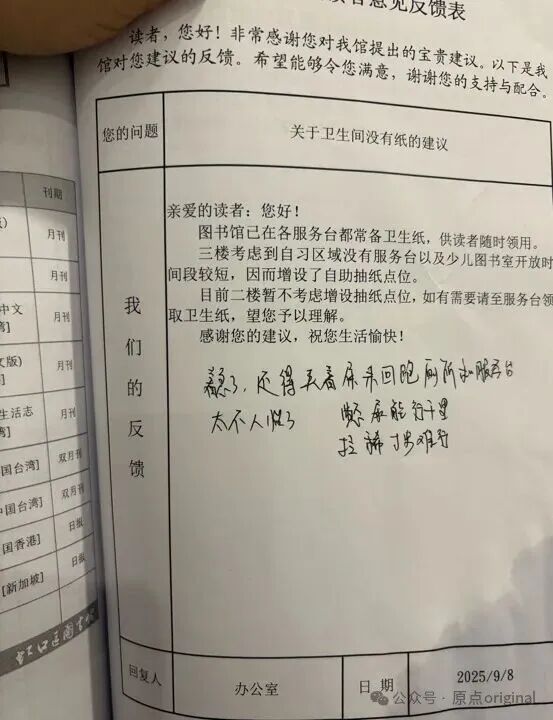 意见反馈表
读者，您好！非常感谢您对我馆提出的宝贵建议。以下是我
馆对您建议的反馈。希望能够令您满意，谢谢您的支持与配合。
您的问题
关于卫生间没有纸的建议
我们的反馈
亲爱的读者：您好！
图书馆已在各服务台都常备卫生纸，供读者随时领用。
三楼考虑到自习区域没有服务台以及少儿图书室开放时
间段较短，因而增设了自助抽纸点位。
目前二楼暂不考虑增设抽纸点位，如有需要请至服务台领
取卫生纸，望您予以理解。
感谢您的建议，祝您生活愉快！
着急了，还得夹着屎来回跑厕所和服务台
太不人性了
憋尿能行千里
拉稀寸步难行
回复人
办公室
日 期
2025/9/8
刊期
版)
月刊
月刊
中文
湾]
月刊
文版)
湾]
月刊
生活志
湾]
月刊
国台湾]
双月刊
中国台湾]
双月刊
国香港]
日报
[新加坡]
日报
虹口区图书馆
公众号 · 原点original